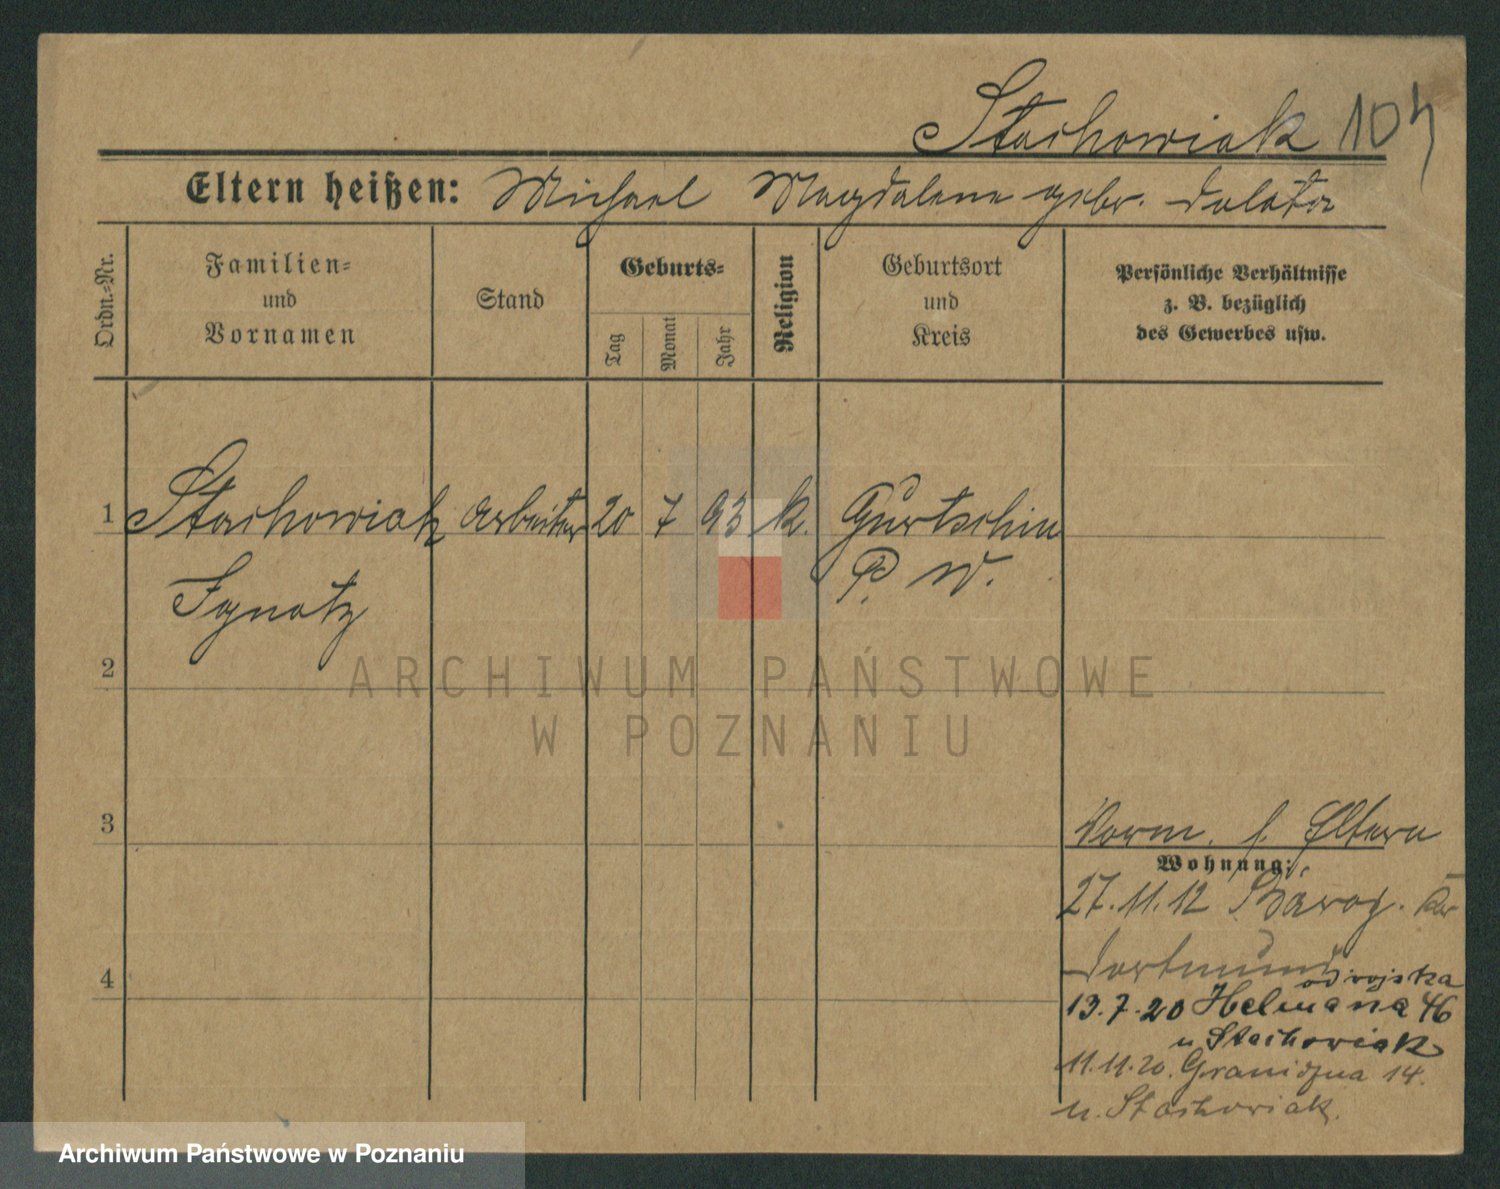 Stachowiak 104
Eltern heißen: Michael Magdalena gebr. Dulata
Ordn.-Nr.
Familien-
und
Vornamen
Stand
Geburts-
Tag
Monat
Jahr
Religion
Geburtsort
und
Kreis
Persönliche Verhältnisse
z. B. bezüglich
des Gewerbes usw.
1 Stachowiak Arbeiter 20 7 93 k. Gurtschin
Ignatz P. W.
2
3
4
Vorm. s. Eltern
Wohnung:
27.11.12
Dortmund
od wojska
13.7.20 Helmana 46
u Stachowiak
11.11.20. Graniczna 14.
u. Stachowiak.
ARCHIWUM PAŃSTWOWE
W POZNANIU
Archiwum Państwowe w Poznaniu